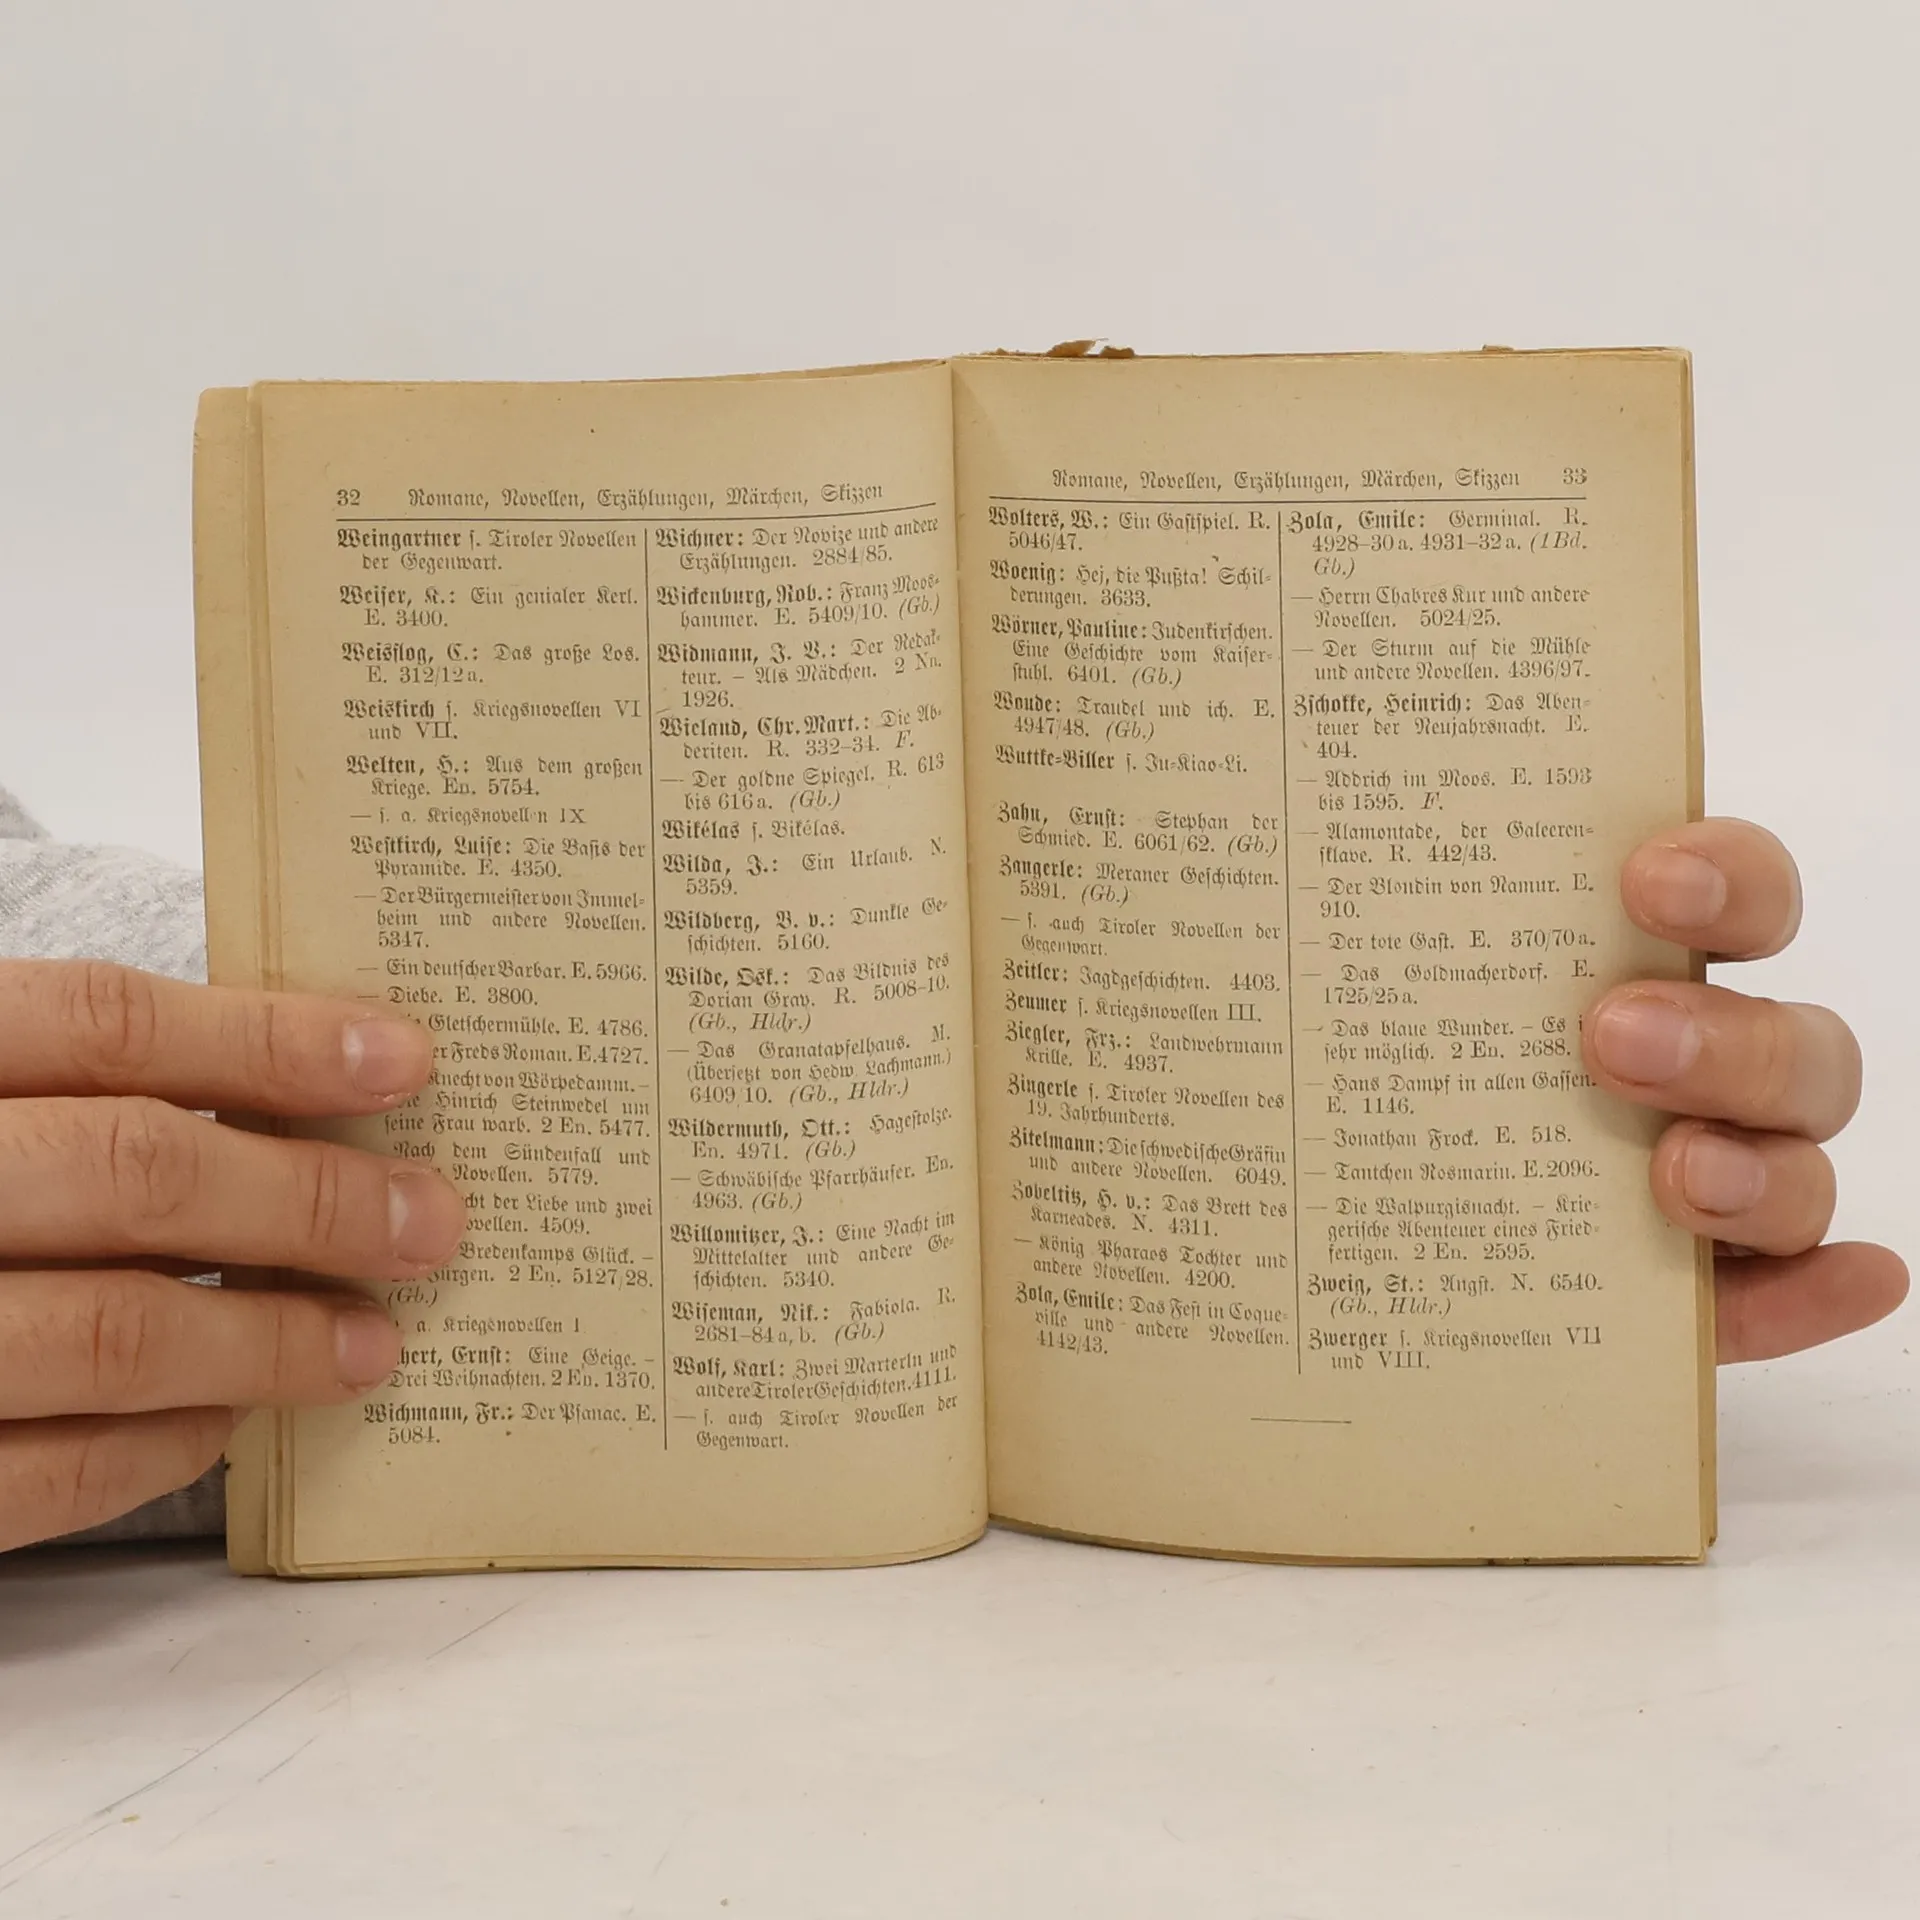 32 Romane, Novellen, Erzählungen, Märchen, Skizzen
Weingartner s. Tiroler Novellen
der Gegenwart.
Weiser, K.: Ein genialer Kerl.
E. 3400.
Weisflog, C.: Das große Los.
E. 312/12a.
Weiskirch s. Kriegsnovellen VI
und VII.
Welten, H.: Aus dem großen
Kriege. En. 5754.
— s. a. Kriegsnovellen IX
Westkirch, Luise: Die Basis der
Pyramide. E. 4350.
— Der Bürgermeister von Immel-
heim und andere Novellen.
5347.
— Ein deutscher Barbar. E. 5966.
— Diebe. E. 3800.
Gletschermühle. E. 4786.
Freds Roman. E. 4727.
Knecht von Wörpedamm. –
Hinrich Steinwedel um
seine Frau warb. 2 En. 5477.
Nach dem Sündenfall und
Novellen. 5779.
der Liebe und zwei
4509.
Bredenkamps Glück. –
Jürgen. 2 En. 5127/28.
(Gb.)
a. Kriegsnovellen I
Ernst: Eine Geige. –
Drei Weihnachten. 2 En. 1370.
Wichmann, Fr.: Der Pfanac. E.
5084.
Wichner: Der Novize und andere
Erzählungen. 2884/85.
Wickenburg, Rob.: Franz Moos-
hammer. E. 5409/10. (Gb.)
Widmann, J. V.: Der Redak-
teur. – Als Mädchen. 2 Nn.
1926.
Wieland, Chr. Mart.: Die Ab-
deriten. R. 332–34. F.
— Der goldne Spiegel. R. 613
bis 616a. (Gb.)
Wikélas s. Bikélas.
Wilda, J.: Ein Urlaub. N.
5359.
Wildberg, B. v.: Dunkle Ge-
schichten. 5160.
Wilde, Osk.: Das Bildnis des
Dorian Gray. R. 5008–10.
(Gb., Hldr.)
— Das Granatapfelhaus. M.
(Übersetzt von Hedw. Lachmann.)
6409/10. (Gb., Hldr.)
Wildermuth, Ott.: Hagestolze.
En. 4971. (Gb.)
— Schwäbische Pfarrhäuser. En.
4963. (Gb.)
Willomitzer, J.: Eine Nacht im
Mittelalter und andere Ge-
schichten. 5340.
Wiseman, Nik.: Fabiola. R.
2681–84a, b. (Gb.)
Wolf, Karl: Zwei Marterln und
andere Tiroler Geschichten. 4111.
— s. auch Tiroler Novellen der
Gegenwart.
Romane, Novellen, Erzählungen, Märchen, Skizzen 33
Wolters, W.: Ein Gastspiel. R.
5046/47.
Woenig: Hej, die Pußta! Schil-
derungen. 3633.
Wörner, Pauline: Judenkirschen.
Eine Geschichte vom Kaiser-
stuhl. 6401. (Gb.)
Woude: Traudel und ich. E.
4947/48. (Gb.)
Wuttke-Biller s. Ju-Kiao-Li.
Zahn, Ernst: Stephan der
Schmied. E. 6061/62. (Gb.)
Zangerle: Meraner Geschichten.
5391. (Gb.)
— s. auch Tiroler Novellen der
Gegenwart.
Zeitler: Jagdgeschichten. 4403.
Zeumer s. Kriegsnovellen III.
Ziegler, Frz.: Landwehrmann
Krille. E. 4937.
Zingerle s. Tiroler Novellen des
19. Jahrhunderts.
Zitelmann: Die schwedische Gräfin
und andere Novellen. 6049.
Zobeltitz, H. v.: Das Brett des
Karneades. N. 4311.
— König Pharaos Tochter und
andere Novellen. 4200.
Zola, Emile: Das Fest in Coque-
ville und andere Novellen.
4142/43.
Zola, Emile: Germinal. R.
4928–30a. 4931–32a. (1 Bd.
Gb.)
— Herrn Chabres Kur und andere
Novellen. 5024/25.
— Der Sturm auf die Mühle
und andere Novellen. 4396/97.
Zschokke, Heinrich: Das Aben-
teuer der Neujahrsnacht. E.
404.
— Addrich im Moos. E. 1593
bis 1595. F.
— Alamontade, der Galeeren-
sklave. R. 442/43.
— Der Blondin von Namur. E.
910.
— Der tote Gast. E. 370/70a.
— Das Goldmacherdorf. E.
1725/25a.
— Das blaue Wunder. – Es
sehr möglich. 2 En. 2688.
— Hans Dampf in allen Gassen.
E. 1146.
— Jonathan Frock. E. 518.
— Tantchen Rosmarin. E. 2096.
— Die Walpurgisnacht. – Krie-
gerische Abenteuer eines Fried-
fertigen. 2 En. 2595.
Zweig, St.: Angst. N. 6540.
(Gb., Hldr.)
Zwerger s. Kriegsnovellen VII
und VIII.